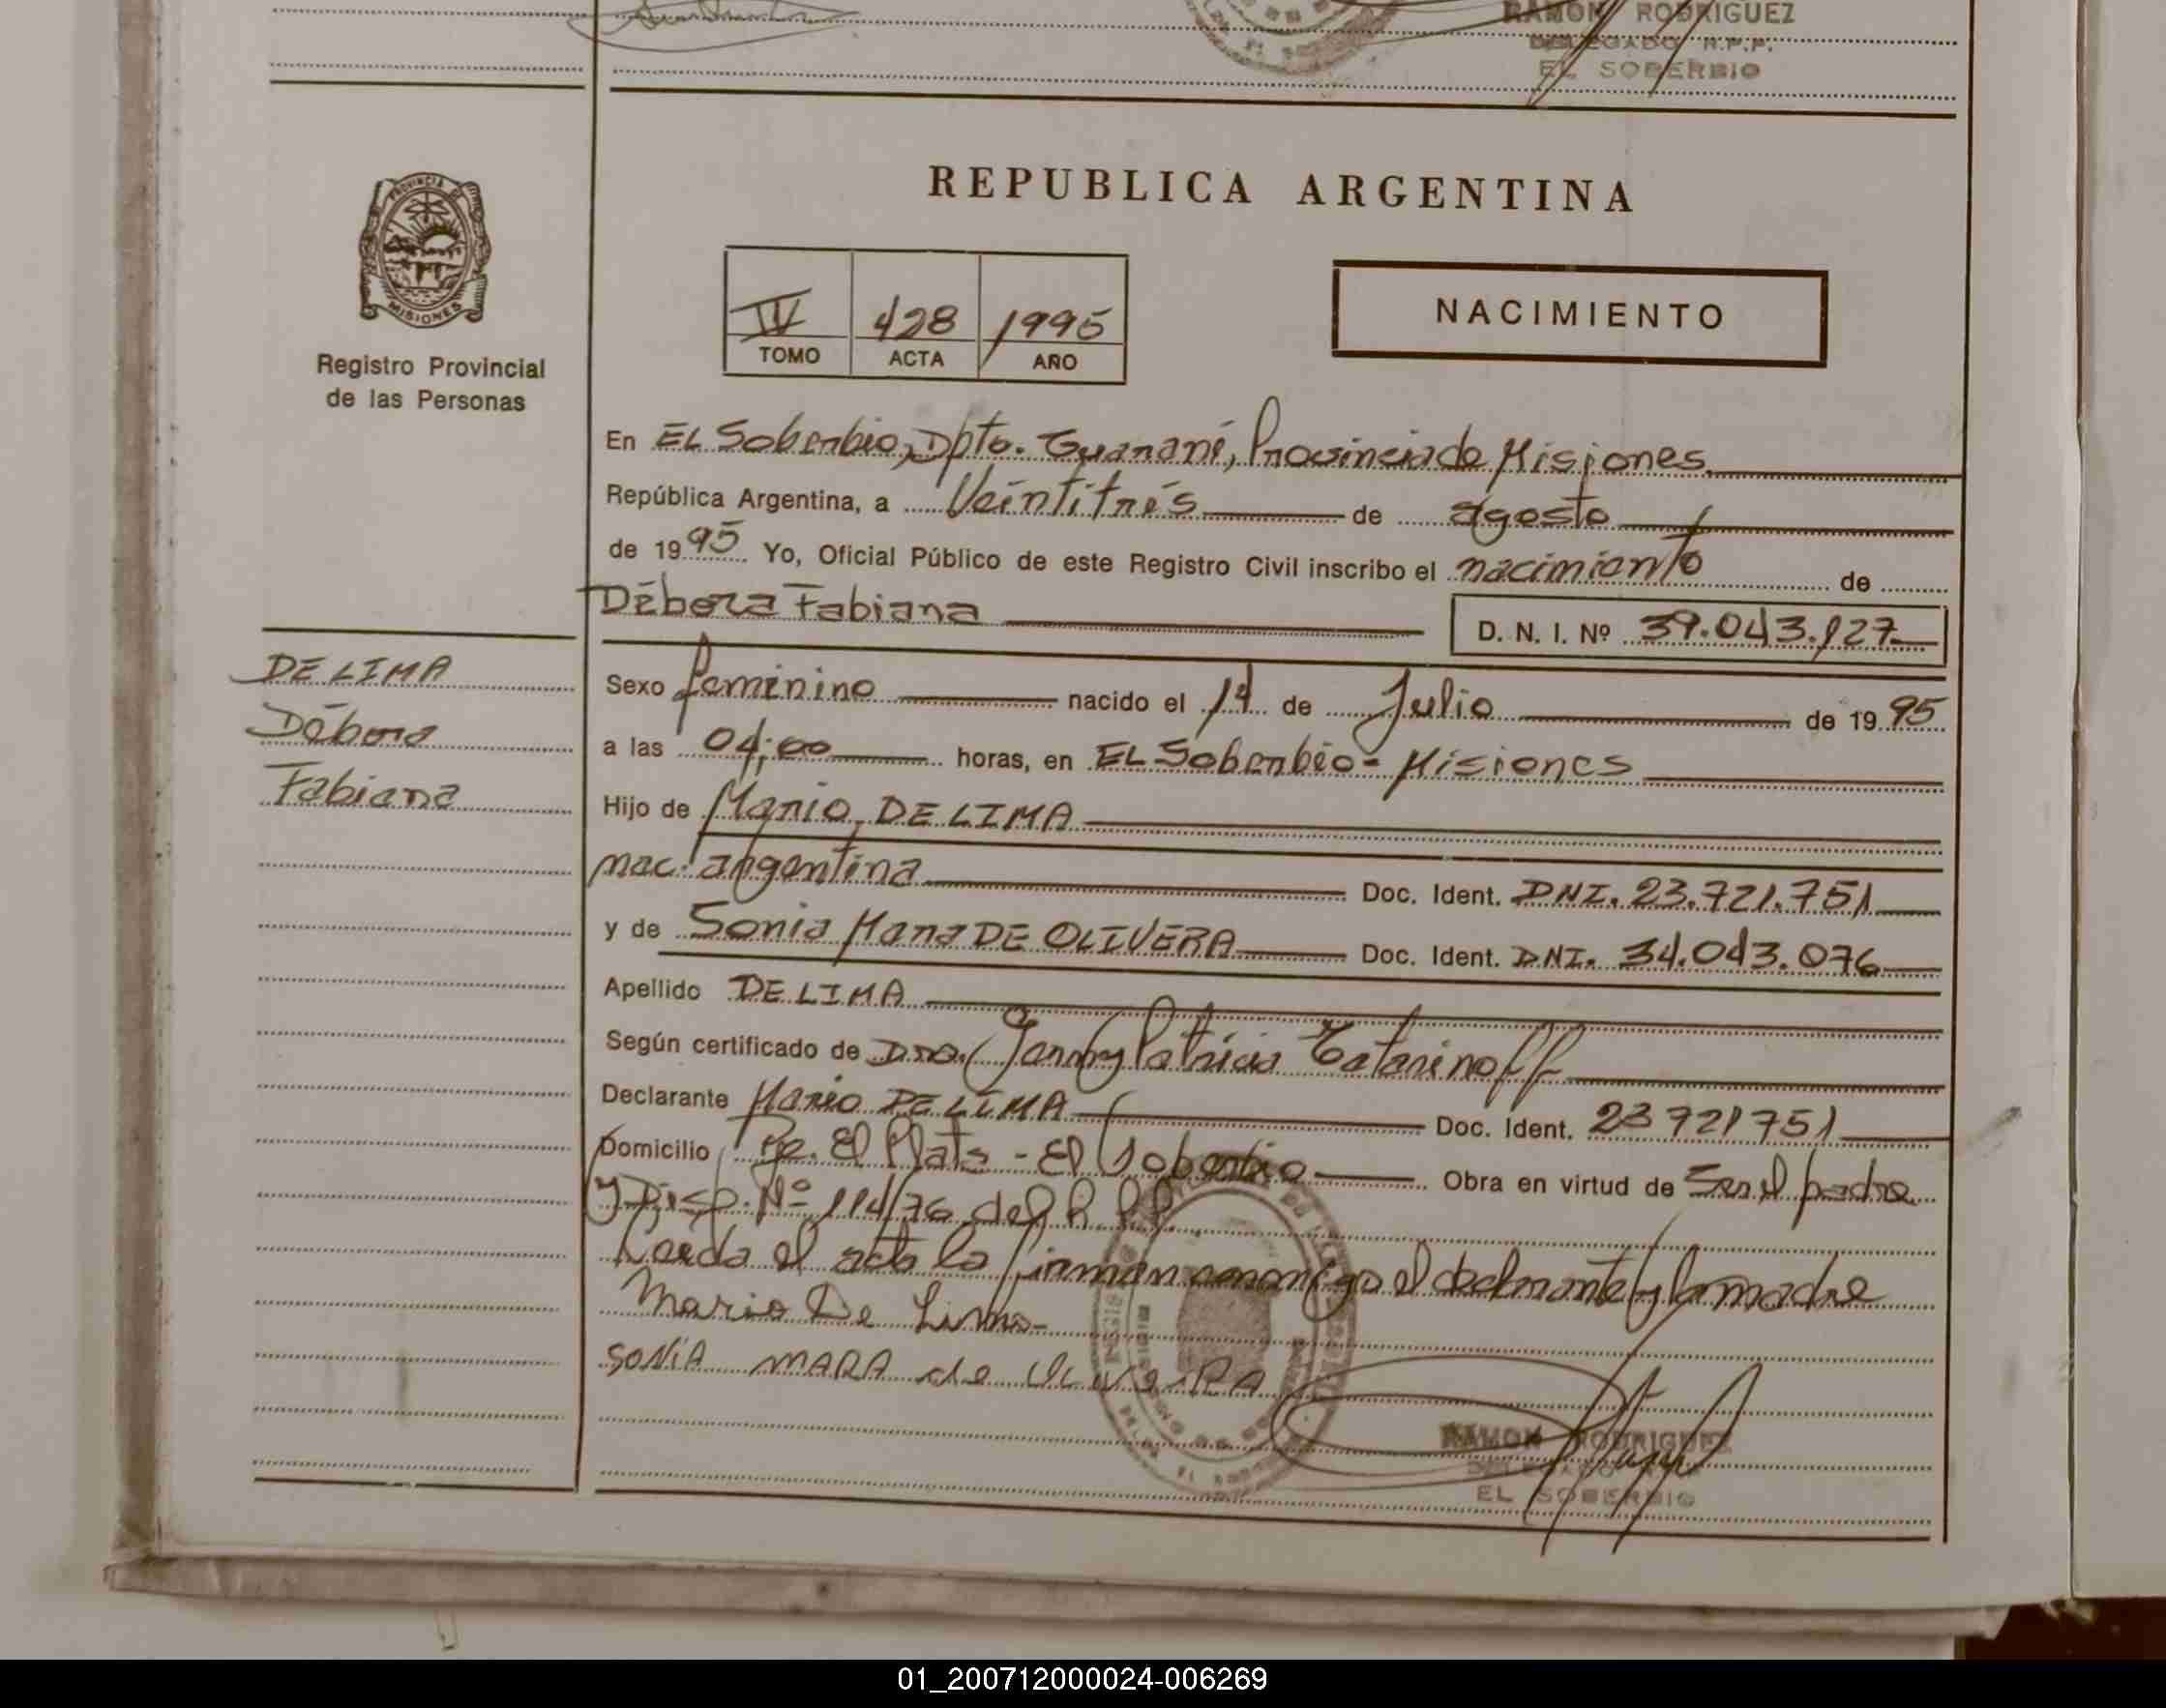 RAMON RODRIGUEZ
DELEGADO R.P.P.
EL SOBERBIO
PROVINCIA DE
MISIONES
Registro Provincial
de las Personas
REPUBLICA ARGENTINA
IV 428 1995
TOMO ACTA AÑO
NACIMIENTO
En EL Soberbio, Dpto. Guaraní, Provincia de Misiones
República Argentina, a Veintitrés de agosto
de 1995 Yo, Oficial Público de este Registro Civil inscribo el nacimiento de
Débora Fabiana
D. N. I. Nº 39.043.127
DE LIMA
Débora
Fabiana
Sexo femenino nacido el 14 de Julio de 1995
a las 04:00 horas, en EL Soberbio - Misiones
Hijo de Mario DE LIMA
nac. argentina Doc. Ident. DNI. 23.721.751
y de Sonia Mara DE OLIVERA Doc. Ident. DNI. 34.043.076
Apellido DE LIMA
Según certificado de Dra. Patricia
Declarante Mario DE LIMA Doc. Ident. 23721751
Domicilio El Plata - El Soberbio Obra en virtud de Ser el padre
y Disp. Nº 114/76 del R.P.P.
Leída el acta la firman conmigo el declarante y la madre
Mario De Lima
SONIA MARA de OLIVEIRA
RAMON RODRIGUEZ
DELEGADO
EL SOBERBIO
01_200712000024-006269